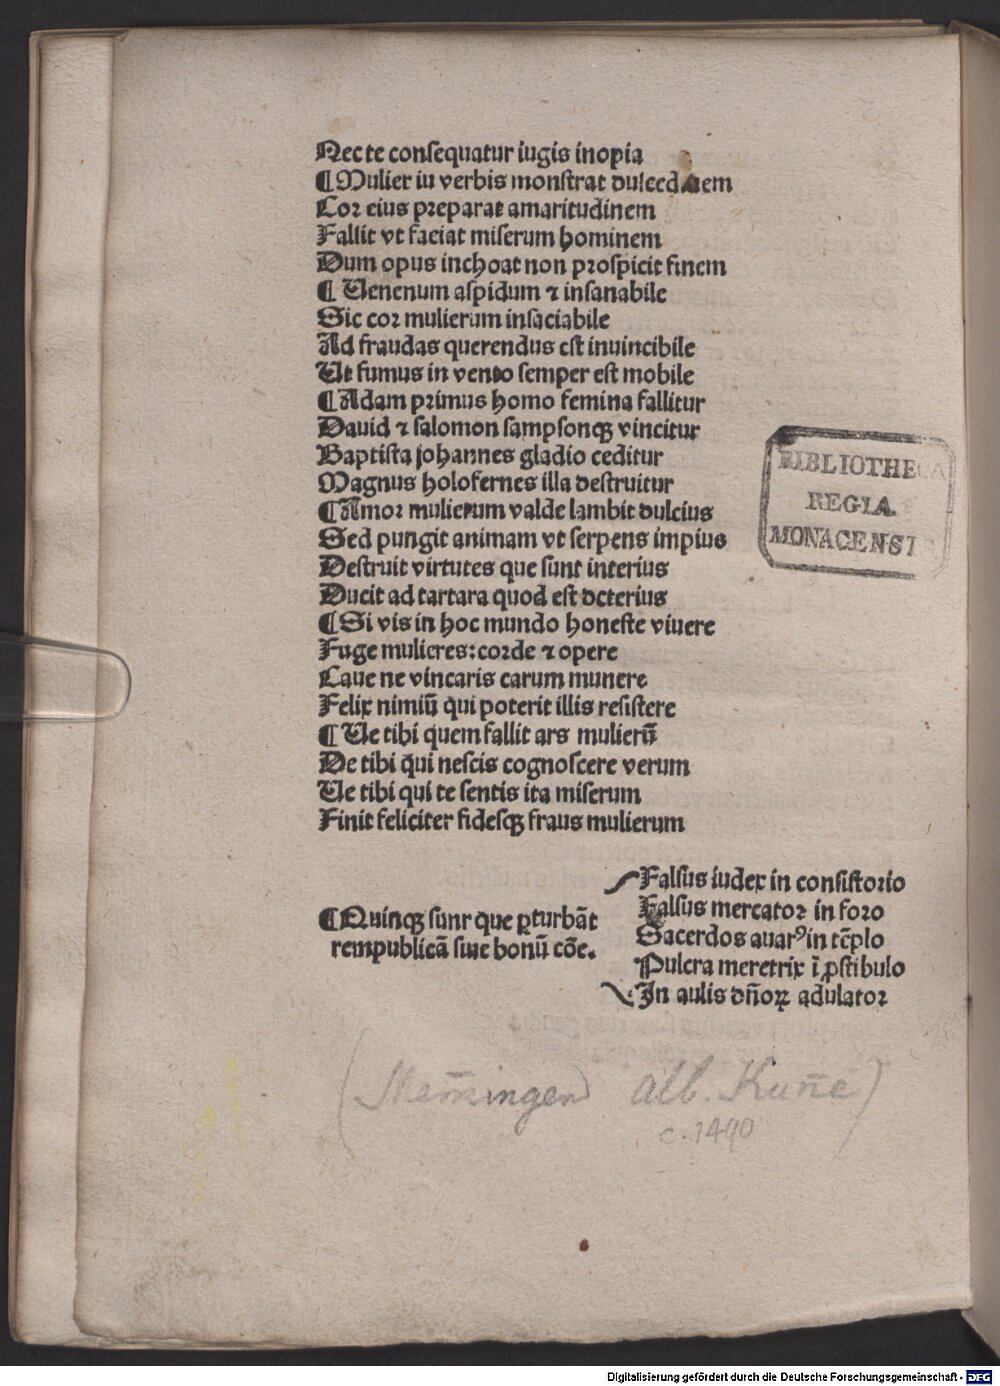 Nec te consequatur iugis inopia
¶ Mulier iu verbis monstrat dulcedinem
Cor eius preparat amaritudinem
Fallit vt faciat miserum hominem
Dum opus inchoat non prospicit finem
¶ Uenenum aspidum ⁊ insanabile
Sic cor mulierum insaciabile
Ad fraudas querendus est inuincibile
Ut fumus in vento semper est mobile
¶ Adam primus homo femina fallitur
Dauid ⁊ salomon sampsonqꝫ vincitur
Baptista johannes gladio ceditur
Magnus holofernes illa destruitur
¶ Amor mulierum valde lambit dulcius
Sed pungit animam vt serpens impius
Destruit virtutes que sunt interius
Ducit ad tartara quod est deterius
¶ Si vis in hoc mundo honeste viuere
Fuge mulieres: corde ⁊ opere
Caue ne vincaris carum munere
Felix nimiū qui poterit illis resistere
¶ Ue tibi quem fallit ars mulierū
De tibi q̄ui nescis cognoscere verum
Ue tibi qui te sentis ita miserum
Finit feliciter fidesqꝫ fraus mulierum
¶ Quinqꝫ sunr que ꝑturbāt
rempublicā siue bonū cōe.
Falsus iudex in consistorio
Falsus mercator in foro
Sacerdos auarꝰ in tēplo
Pulcra meretrix ī ꝓstibulo
In aulis dn̄oꝝ adulator
BIBLIOTHECA
REGIA
MONACENSIS
(Mem̄ingen Alb. Kun̄e)
c. 1490
Digitalisierung gefördert durch die Deutsche Forschungsgemeinschaft - DFG